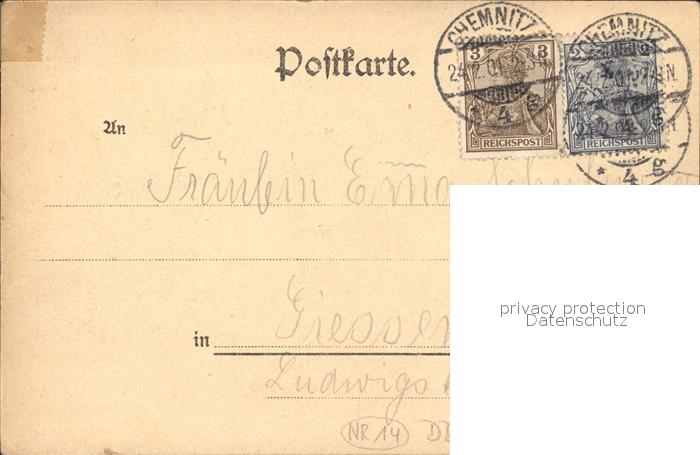 CHEMNITZ CHEMNITZ
3 3 2 2
Postkarte.
REICHSPOST REICHSPOST
4 g
* 4 g
An
Fräulein Erna
in Giessen
Ludwigs
NR 14
privacy protection
Datenschutz